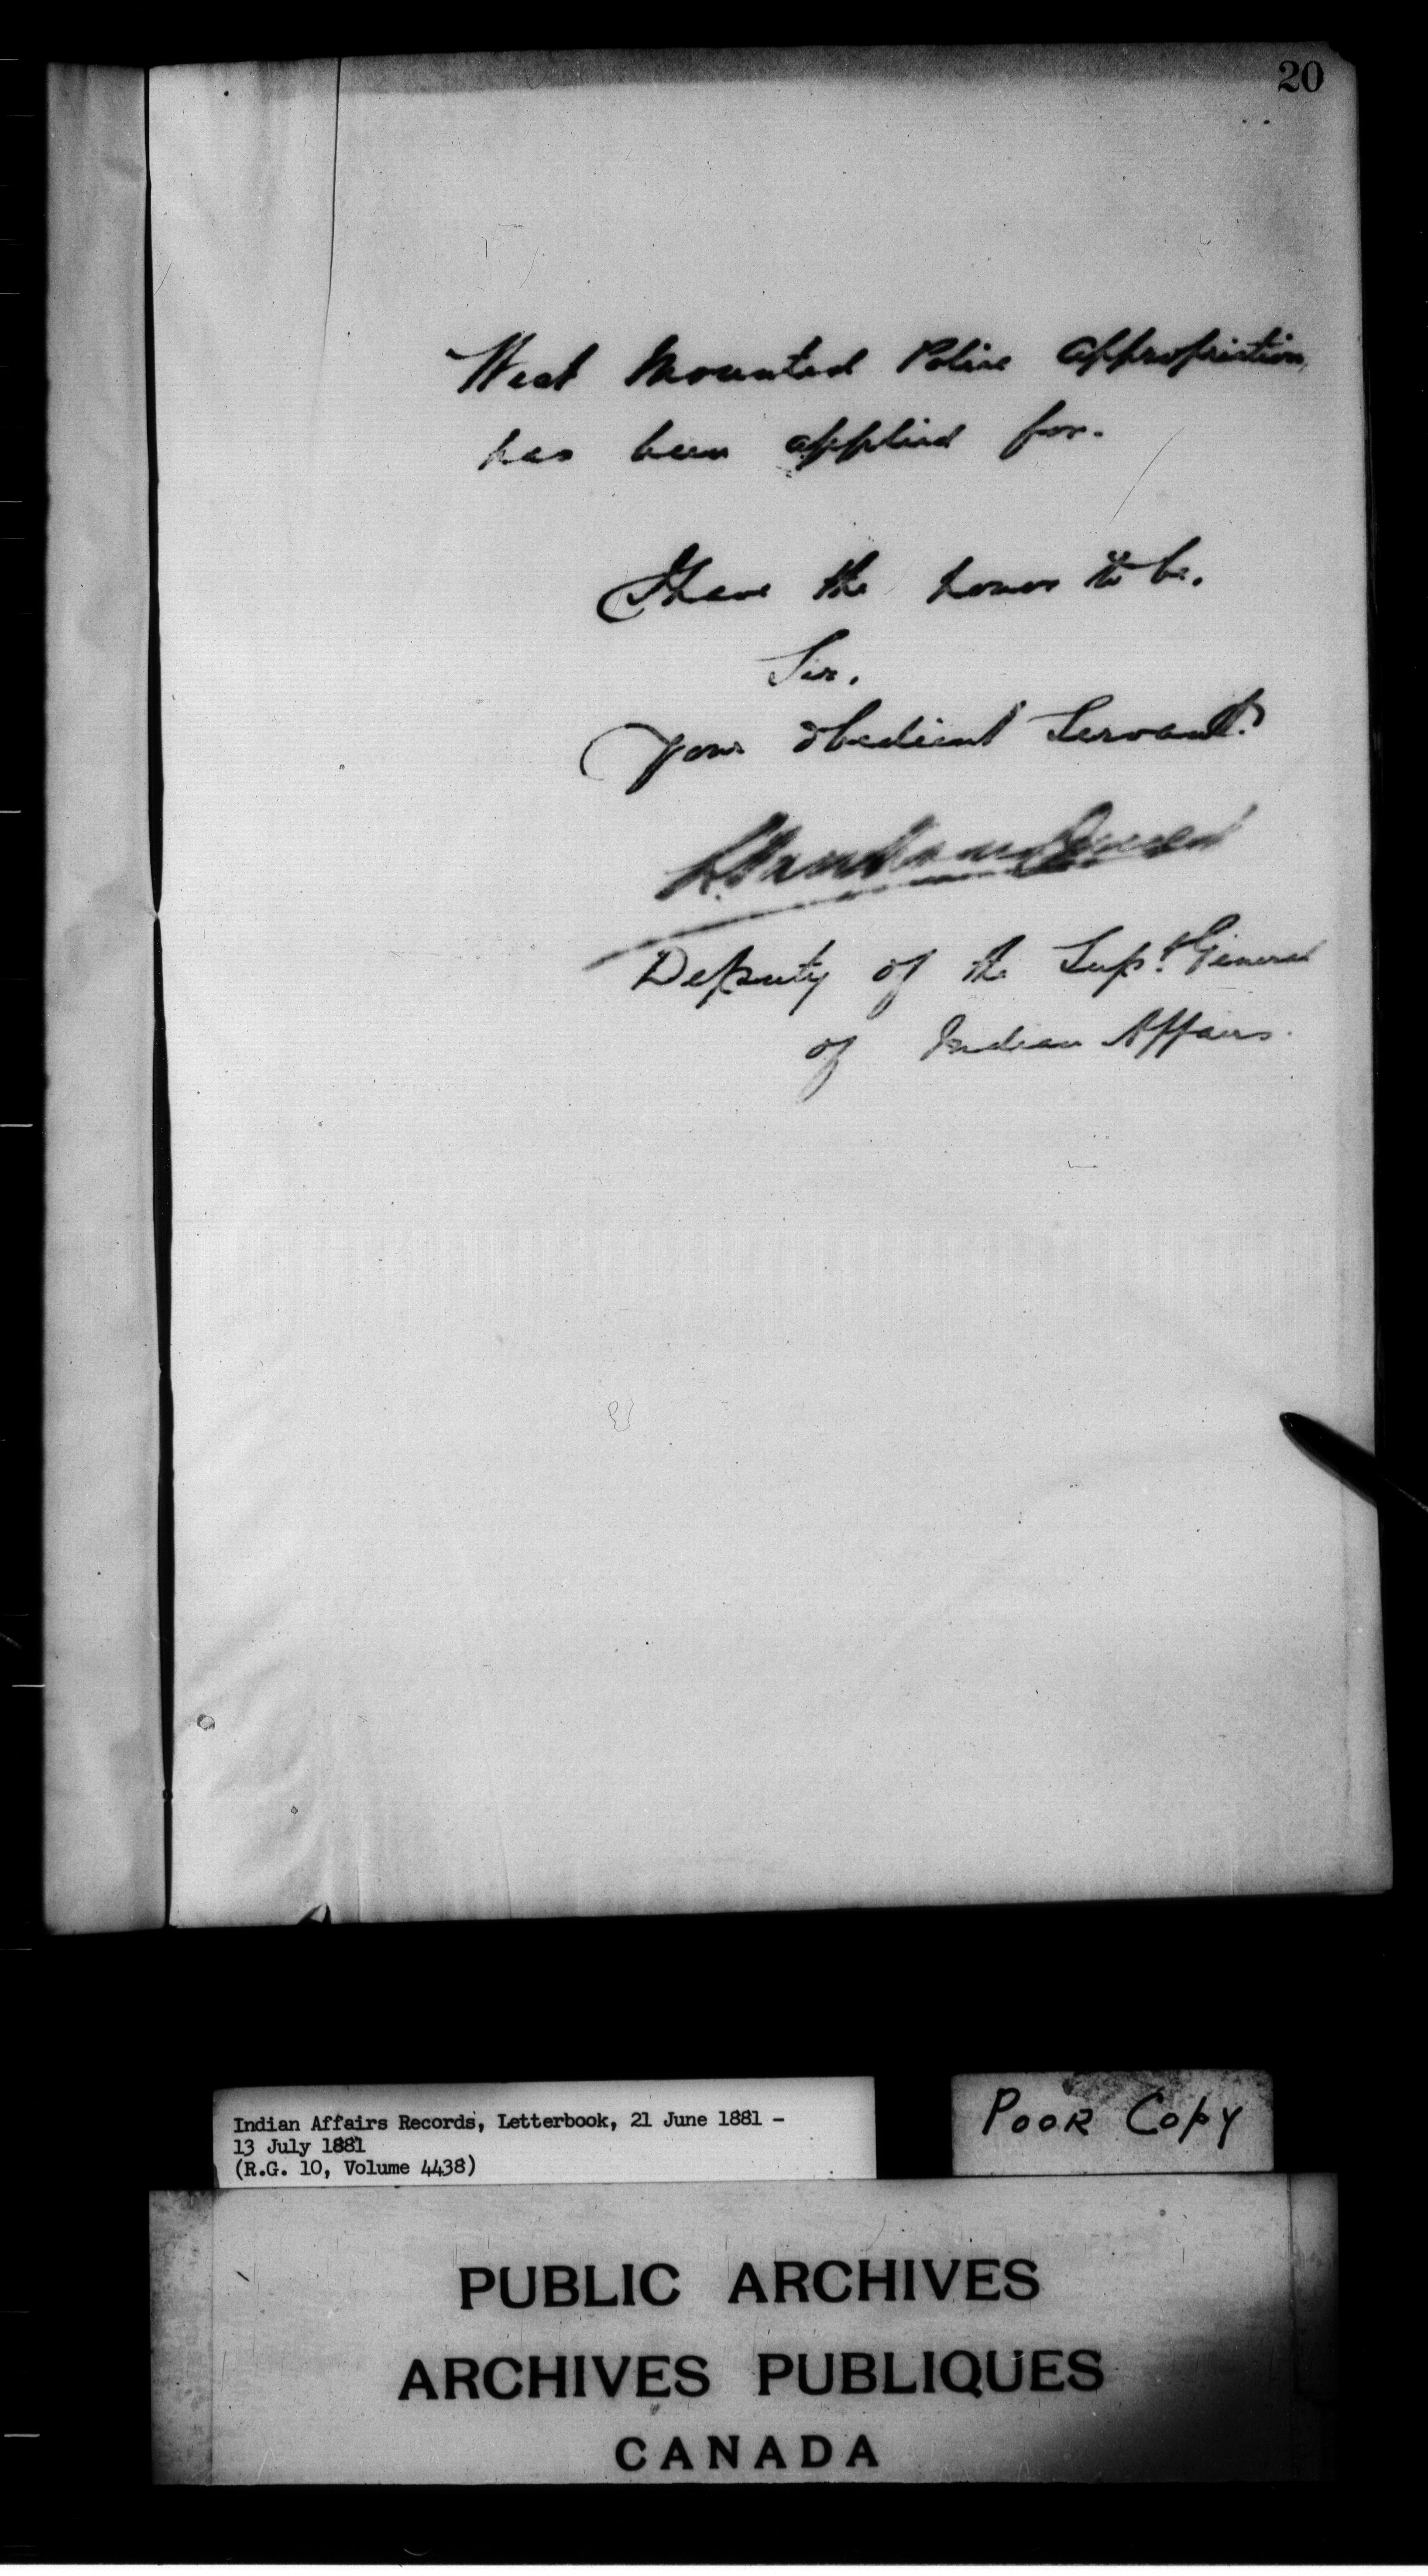 20
West Mounted Police Appropriation,
has been applied for.
I have the honor to be,
Sir,
Your obedient Servant
L. Vankoughnet
Deputy of the Supt. General
of Indian Affairs.
Indian Affairs Records, Letterbook, 21 June 1881 –
13 July 1881
(R.G. 10, Volume 4438)
POOR COPY
PUBLIC ARCHIVES
ARCHIVES PUBLIQUES
CANADA